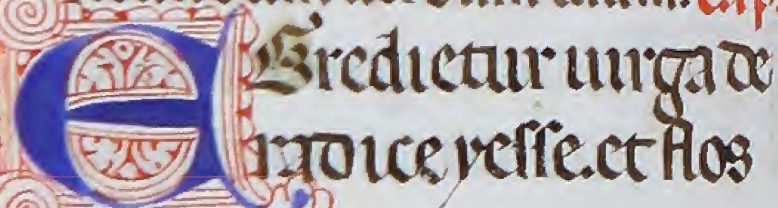 EGredietur uirga de
radice yesse. et flos